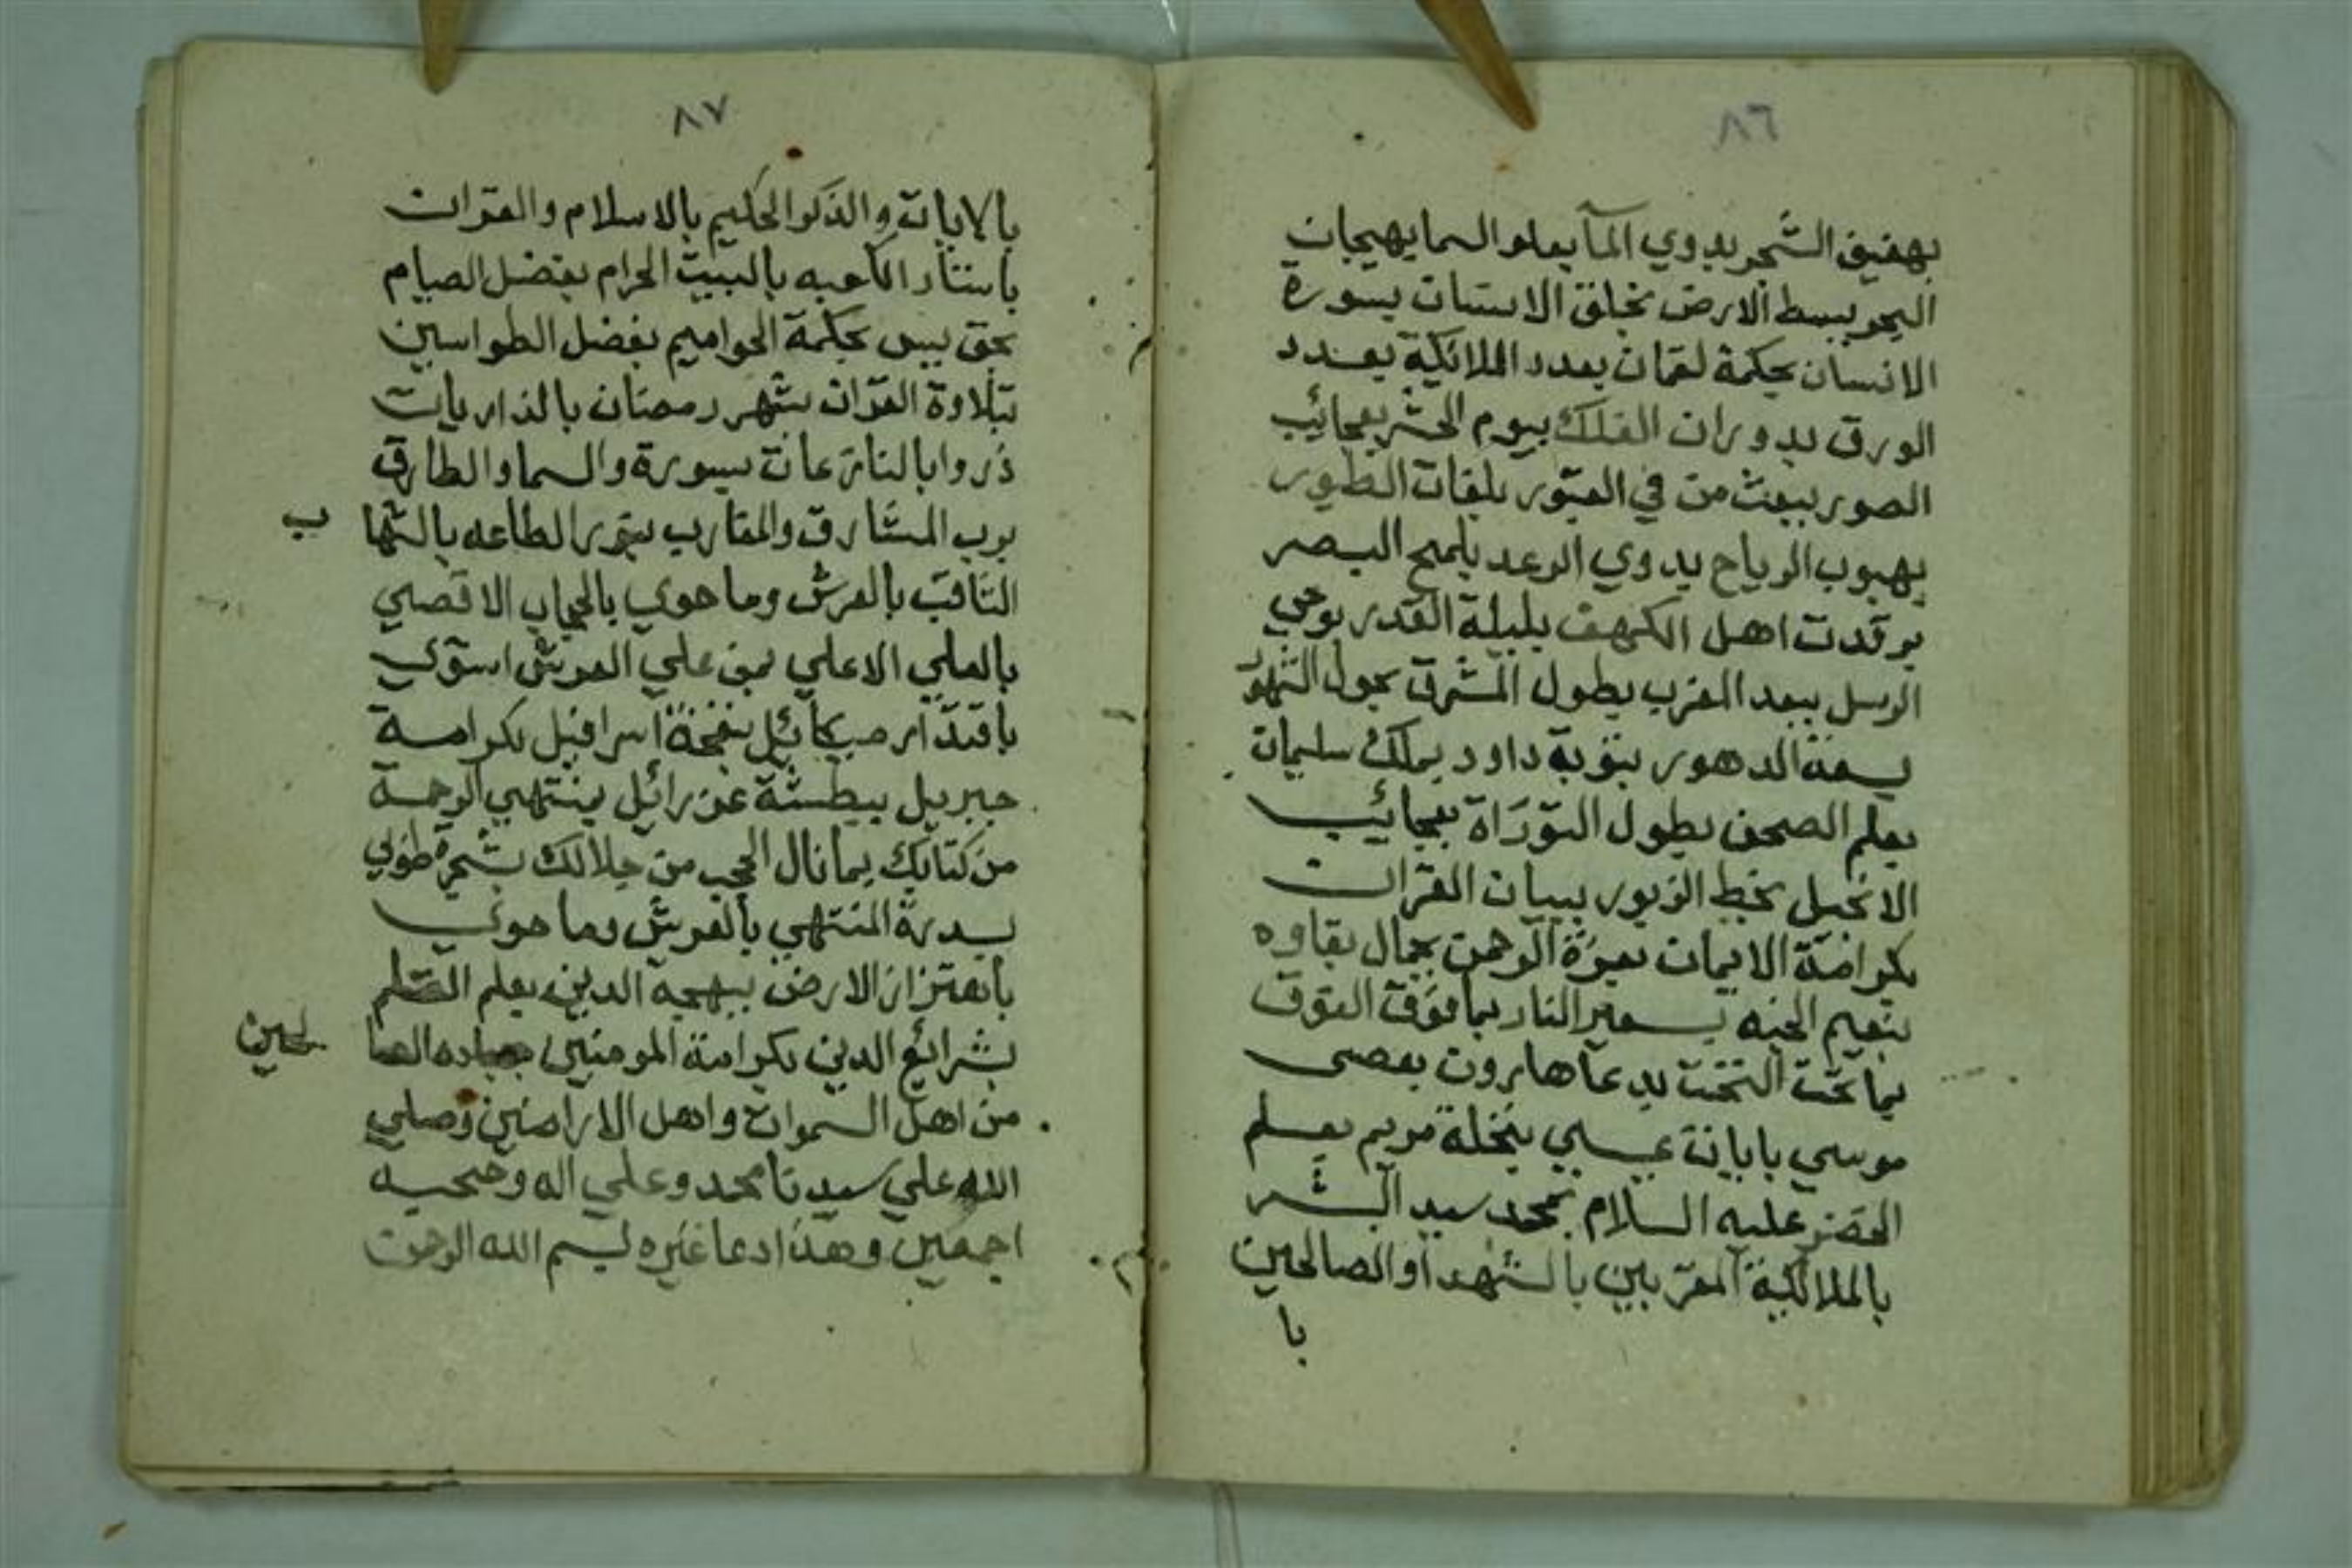 ٨٦
بهفيف الشجر بدوي المآ بعلو السما بهيجان
البحر ببسط الارض بخلق الانسان بسورة
الانسان بحكمة لقمان بعدد الملائكة بعدد
الورق بدوران الفلك بيوم الحشر بعجائب
الصور ببعث من في القبور بلغات الطيور
بهبوب الرياح بدوي الرعد بلمح البصر
برقدت اهل الكهف بليلة القدر بوحي
الرسل ببعد المغرب بطول المشرق بحول الشهور
بسعة الدهور بتوبة داود بملك سليمان
بعلم الصحف بطول التوراة بعجائب
الانجيل بخط الزبور ببيان القران
بكرامة الايمان بعزة الرحمن بجمال بقاوه
بنعيم الجنه بسعير النار بما فوق الفوق
بما تحت التخت بدعآ هارون بعصى
موسي بايات عيسي بنخلة مريم بعلم
الخضر عليه السلام بمحمد سيد البشر
بالملائكة المقربين بالشهدآ والصالحين
با
٨٧
بالايات والذكر الحكيم بالاسلام والقران
باستار الكعبه بالبيت الحرام بفضل الصيام
بحق يس بحكمة الحواميم بفضل الطواسين
بتلاوة القران بشهر رمضان بالذاريات
ذروا بالنازعات بسورة والسما والطارق
برب المشارق والمغارب بنور الطاعه بالشها ب
الثاقب بالعرش وما حوي بالحجاب الاقصي
بالعلي الاعلي بمن علي العرش استوي
باقتدار ميكائيل بنفخة اسرافيل بكرامة
جبريل ببطشة عزرائل بمنتهي الرحمة
من كتابك بما نال الحجب من جلالك بشجرة طوبي
بسدرة المنتهي بالعرش وما حوي
باهتزاز الارض ببهجة الدين بعلم القلم
بشرائع الدين بكرامة المومنين بعباده الصا لحين
من اهل السموات واهل الاراضين وصلي
الله علي سيدنا محمد وعلي اله وصحبه
اجمعين وهذا دعا غيره بسم الله الرحمن